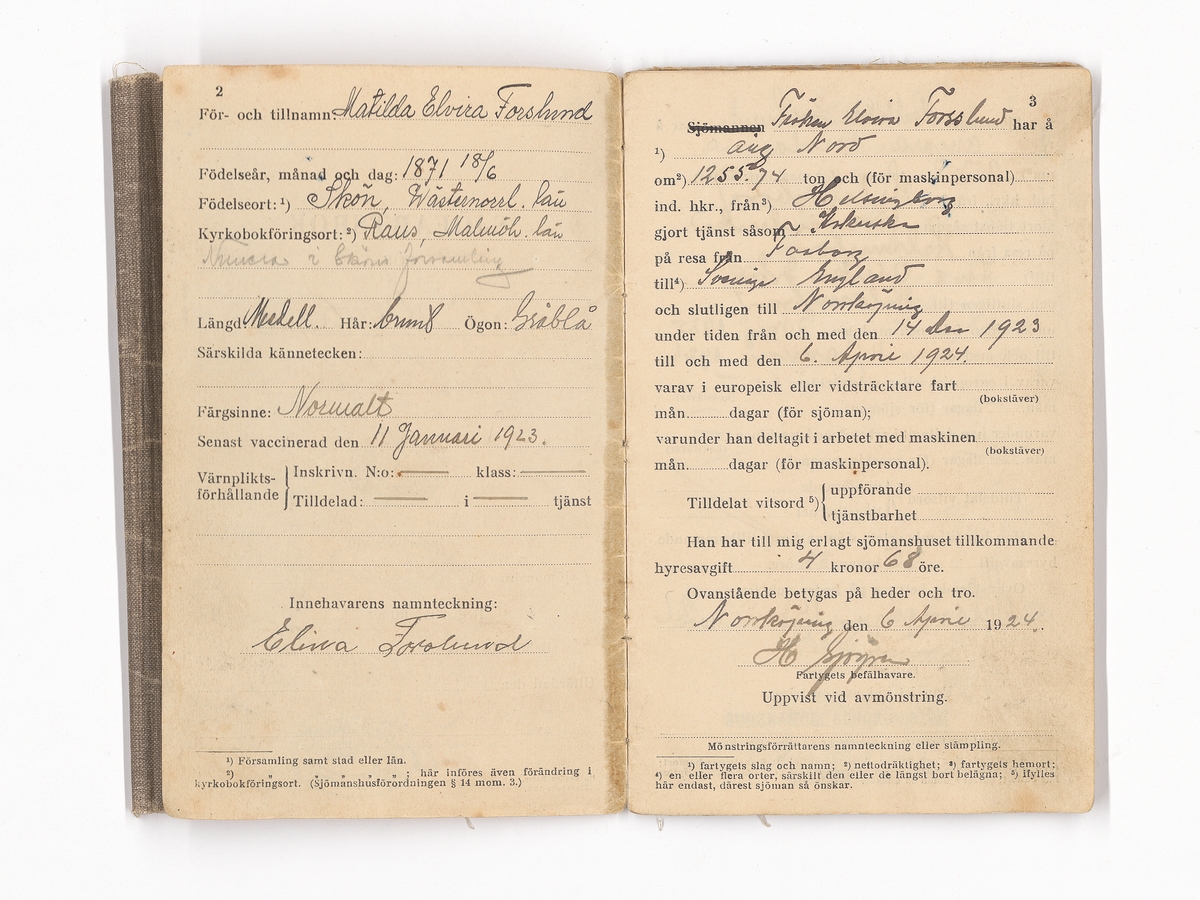 2
För- och tillnamn: Matilda Elvira Forslund
Födelseår, månad och dag: 1871 18/6
Födelseort: ¹) Skön, Västernorrl. län
Kyrkobokföringsort: ²) Raus, Malmöh. län
Numera i Sköns församling
Längd Medell. Hår: brunt Ögon: Gråblå
Särskilda kännetecken:
Färgsinne: Normalt
Senast vaccinerad den 11 Januari 1923.
Värnplikts-förhållande { Inskrivn. N:o: — klass: —
Tilldelad: — i — tjänst
Innehavarens namnteckning:
Elvira Forslund
¹) Församling samt stad eller län.
²) „ „ „ „ „ ; här införes även förändring i
kyrkobokföringsort. (Sjömanshusförordningen § 14 mom. 3.)
3
Sjömannen Fröken Elvira Forsslund har å
¹) ång Nord
om²) 1255.74 ton och (för maskinpersonal)
ind. hkr., från³) Helsingborg
gjort tjänst såsom Kokerska
på resa från
till⁴) Sverige England
och slutligen till Norrköping
under tiden från och med den 14 dec 1923
till och med den 6. April 1924.
varav i europeisk eller vidsträcktare fart
(bokstäver)
mån. dagar (för sjöman);
varunder han deltagit i arbetet med maskinen
(bokstäver)
mån. dagar (för maskinpersonal).
Tilldelat vitsord ⁵) { uppförande
tjänstbarhet
Han har till mig erlagt sjömanshuset tillkommande
hyresavgift 4 kronor 68 öre.
Ovanstående betygas på heder och tro.
Norrköping den 6 April 1924.
H
Fartygets befälhavare.
Uppvist vid avmönstring.
Mönstringsförrättarens namnteckning eller stämpling.
¹) fartygets slag och namn; ²) nettodräktighet; ³) fartygets hemort;
⁴) en eller flera orter, särskilt den eller de längst bort belägna; ⁵) ifylles
här endast, därest sjöman så önskar.